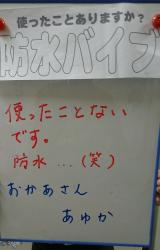 使ったことありますか?
防水バイブ
使ったことない
です。
防水…(笑)
おかあさん
あゆか